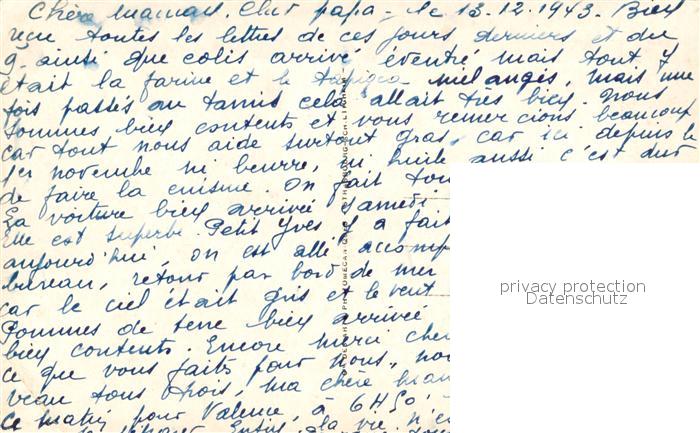 Chère maman. Cher papa - le 13-12-1943. Bien
reçu toutes les lettres de ces jours derniers et du
9. ainsi que colis arrivé éventré mais tout y
était la farine et le tapioca mélangés, mais une
fois passés au tamis cela allait très bien. Nous
sommes bien contents et vous remercions beaucoup
car tout nous aide surtout gras, car ici depuis le
1er novembre ni beurre, ni huile aussi c'est dur
de faire la cuisine. On fait tou
La voiture bien arrivée samedi
Elle est superbe. Petit Yves y a fait
aujourd'hui, on est allé accomp
bureau, retour par bord de mer
car le ciel était gris et le vent
Pommes de terre bien arrivée
bien contents. Encore merci cher
ce que vous faits pour nous,
veau tous trois, ma chère mam
ce matin pour Valence, à 6H50
Enfin, la vie n'e
privacy protection
Datenschutz